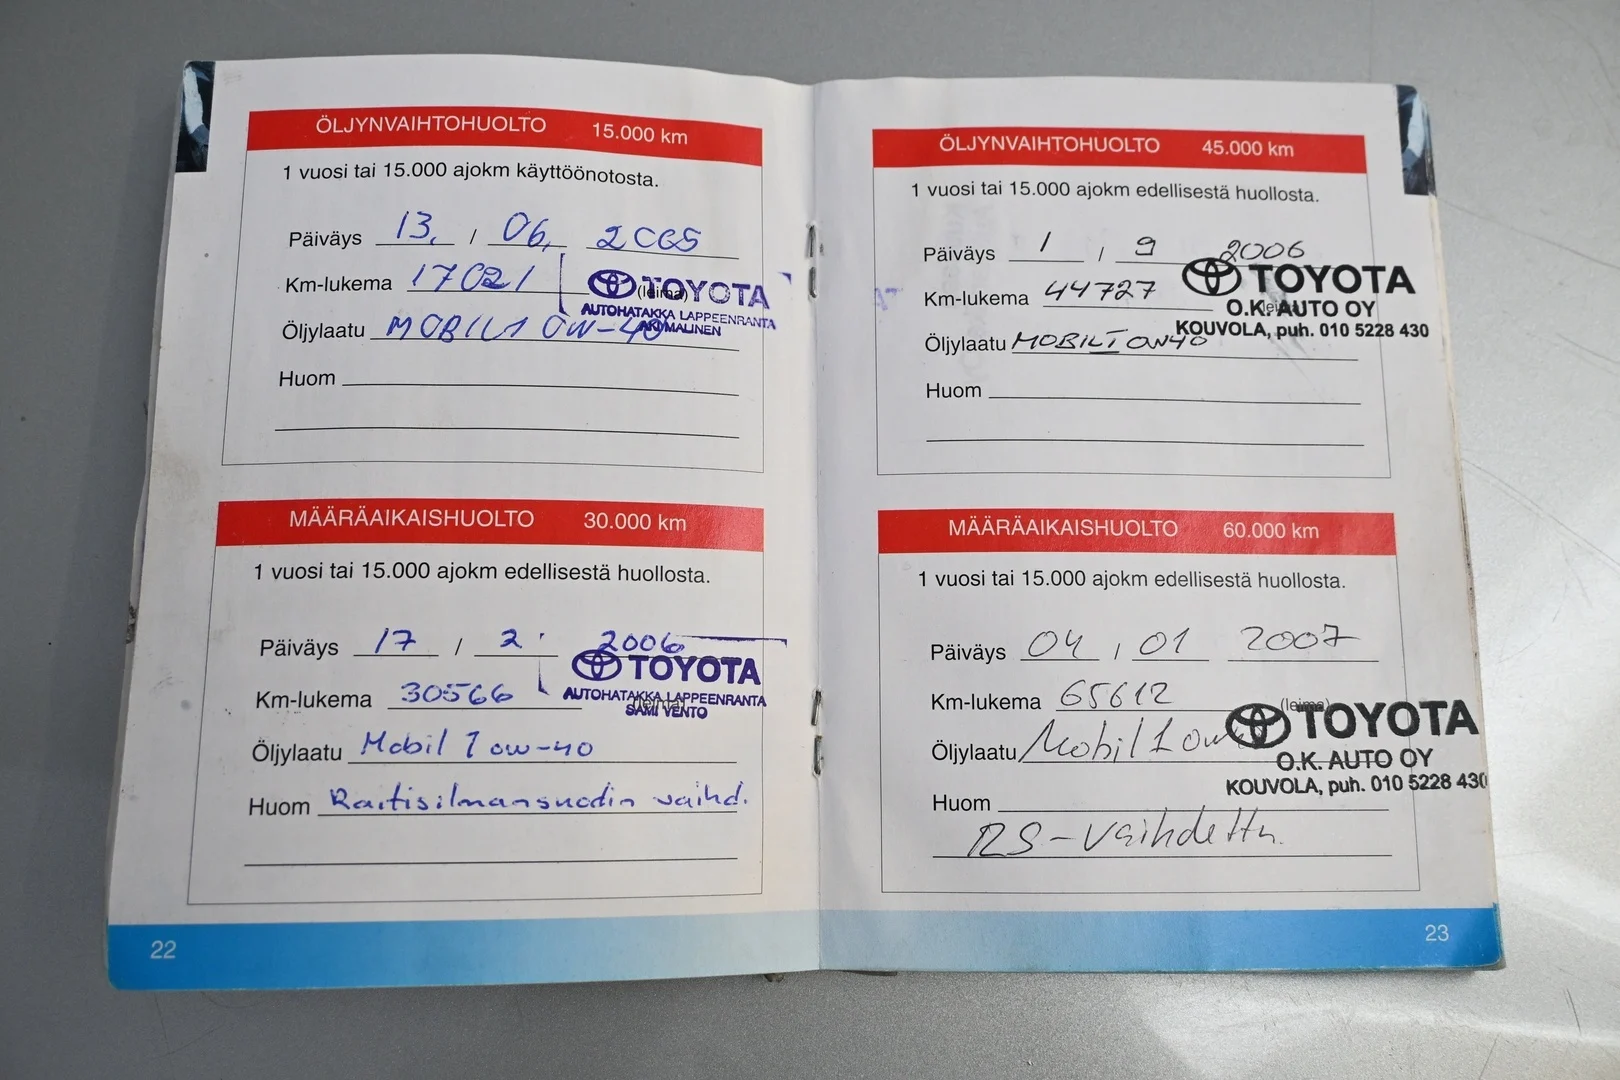 ÖLJYNVAIHTOHUOLTO 15.000 km
1 vuosi tai 15.000 ajokm käyttöönotosta.
Päiväys 13. / 06. 2005
Km-lukema 17021 (leima) TOYOTA
AUTOHATAKKA LAPPEENRANTA
Öljylaatu MOBIL 1 0W-40 AKI MALINEN
Huom
MÄÄRÄAIKAISHUOLTO 30.000 km
1 vuosi tai 15.000 ajokm edellisestä huollosta.
Päiväys 17 / 2. 2006
TOYOTA
Km-lukema 30566 (leima)
AUTOHATAKKA LAPPEENRANTA
SAMI VENTO
Öljylaatu Mobil 1 0w-40
Huom Raitisilmansuodin vaihd.
22
ÖLJYNVAIHTOHUOLTO 45.000 km
1 vuosi tai 15.000 ajokm edellisestä huollosta.
Päiväys 1 / 9 2006
TOYOTA
Km-lukema 44727 (leima)
O.K. AUTO OY
KOUVOLA, puh. 010 5228 430
Öljylaatu MOBIL 1 0W40
Huom
MÄÄRÄAIKAISHUOLTO 60.000 km
1 vuosi tai 15.000 ajokm edellisestä huollosta.
Päiväys 04 / 01 2007
Km-lukema 65612 (leima)
TOYOTA
Öljylaatu Mobil 1 0w
O.K. AUTO OY
KOUVOLA, puh. 010 5228 430
Huom
RS-vaihdettu
23